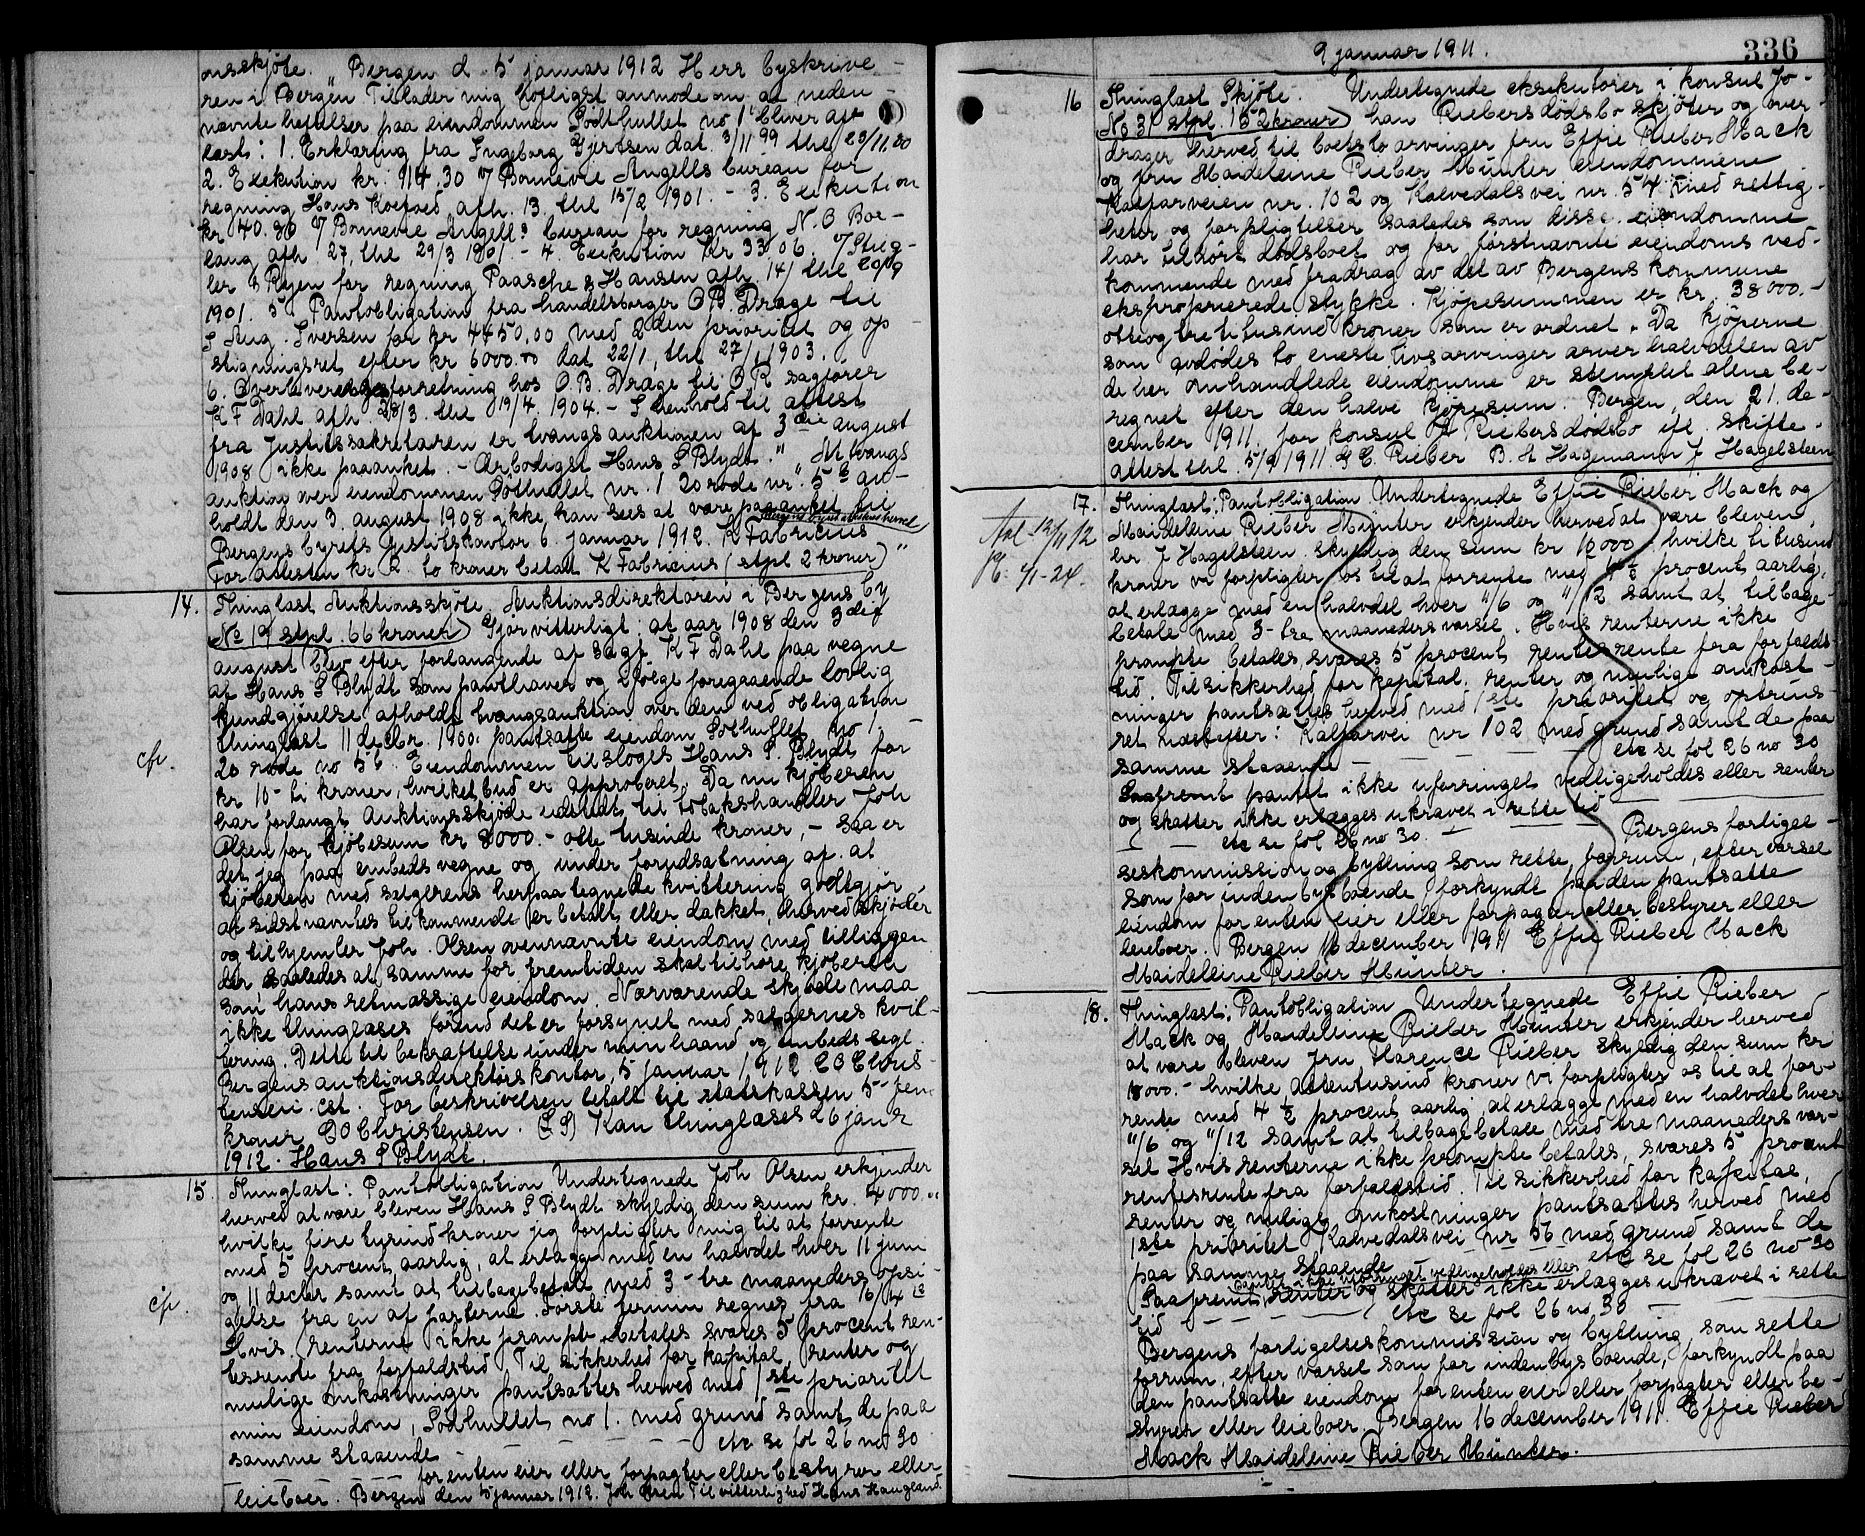 onsskjöte. "Bergen d 5 januar 1912 Herr byskrive-
ren i Bergen Tillader mig höfligst anmode om at neden-
nævnte heftelser paa eiendommen Södthullet no 1 bliver aft
læst: 1. Erklæring fra Ingeborg Gjertsen dat. 3/11 99 thl 23/11.00
2. Exekution kr. 114.30 v/ Bonnevie Angells bureau for
regning Hans Koefoed afh. 13. thl 15/2 1901. - 3. Exekution
kr 40.30 v/ Bonnevie Angells bureau for regning N. O Boe-
lang afh 27, thl 29/3 1901. - 4. Exekution Kr 33.06. v/ Stug-
ler & Reyen for regning Paasche & Hansen afh. 14/ thl 20/9
1901. 5 Pantobligation fra handelsborger O B. Dræge til
S Aug. Iversen for kr 4450.00 med 2den prioritet og op-
stigningsret efter kr 6000.00 dat 22/1, thl 27/1 1903.
6. Overleverelsesforretning hos O. B. Dræge til O. R sagförer
K F Dahl afh 28/3. thl 19/4. 1904. - I henhold til attest
fra Justitssekretæren er tvangsauktionen af 3die august
1908 ikke paaanket. - Ærbödigst Hans S Blydt." At tvangs
auktion over eiendommen Södthullet nr. 1 20 rode nr. 56 av-
holdt den 3. august 1908 ikke kan sees at være paaanket til
Bergens byrets justitskontor 6. januar 1912. K Fabricius
For attesten kr 2. to kroner betalt K Fabricius (stpl 2 kroner)"
14. Thinglæst Auktionsskjöte. Auktionsdirektören i Bergens by
No 19 stpl. 66 kroner) Gjör vitterligt: at aar 1908 den 3die
august blev efter forlangende af sagf. K F Dahl paa vegne
af Hans S Blydt som panthaver og ifölge foregaaende lovlig
kundgjörelse afholdt tvangsauktion over den ved obligation
thinglæst 11 decbr. 1900 pantsatte eiendom Södhullet no 1-
cfr.
20 rode no 56. Eiendommen tilsloges Hans S. Blydt for
kr 10- ti kroner, hvilket bud er approberet. Da nu kjöberen
har forlangt Auktionsskjöde udstedt til tobakshandler Joh
Olsen for kjöbesum kr 8000.- otte tusinde kroner, - saa er
det jeg paa embeds vegne og under forudsætning af at
kjöberen med sælgerens herpaa tegnede kvittering godtgjör
at sidstnævntes tilkommende er betalt eller dækket, herved skjöder
og tilhjemler Joh. Olsen ovennævnte eiendom med tilliggen
der, saaledes at samme for fremtiden skal tilhöre kjöberen
som hans retmæssige eiendom. Nærværende skjöde maa
ikke thinglæses förend det er forsynet med sælgernes kvit-
tering. Dette til bekræftelse under min haand og embeds segl.
Bergens auktionsdirektörskontor, 5 januar 1912. C O Chris-
tensen. cst. For beskrivelsen betalt til statskassen 5- fem
kroner C O Christensen. (L S) Kan thinglæses 26 jan r
1912. Hans S Blydt.
15. Thinglæst: Pantobligation Undertegnede Joh Olsen erkjender
herved at være bleven Hans S Blydt skyldig den sum kr. 4000.00
hvilke fire tusind kroner jeg forpligter mig til at forrente
med 5 procent aarlig, at erlægge med en halvdel hver 11 juni
og 11 decber samt at tilbagebetale med 3- tre maaneders opsi-
cfr.
gelse fra en af parterne. Förste termin regnes fra 16/4 12
Hvis renterne ikke prompte betales svares 5 procent ren-
tesrente fra forfaldstid Til sikkerhed for kapital, renter og
mulige omkostninger pantsættes herved med 1ste prioritet
min eiendom, Södhullet no 1. med grund samt de paa
samme staaende - - - - - etc se fol 26 no 30
- - - - - for enten eier eller forpagter eller bestyrer eller
leieboer. Bergen den 5 januar 1912. Joh Olsen Til vitterlighed Hans Haugland.
9 januar 1911.
336
16 Thinglæst Skjöte. Undertegnede eksekutorer i konsul Jo-
No 31 stpl. 152 kroner) han Riebers dödsbo skjöter og over-
drager herved til boets to arvinger fru Effie Rieber Mack
og fru Maideleine Rieber Münter eiendommene
Kalfarveien nr. 102 og Kalvedalsvei nr. 54, med rettig-
heter og forpligtelser saaledes som disse eiendomme
har tilhört dödsboet og for förstnævnte eiendoms ved-
kommende med fradrag av det av Bergens kommune
eksproprierede stykke. Kjöpesummen er kr. 38000.-
otteogtretitusind kroner som er ordnet. Da kjöperne
som avdödes to eneste livsarvinger arver halvdelen av
de her omhandlede eiendomme er stemplet alene be-
regnet efter den halve kjöpesum. Bergen, den 21. de-
cember 1911. for konsul J. Riebers dödsbo ifl. skifte-
attest thl. 5/9 1911 G C. Rieber B. A Hagemann J Hagelsteen
17. Thinglæst: Pantobligation Undertegnede Effie Rieber Mack og
Maideleine Rieber Münter erkjender herved at være bleven
hr. J Hagelsteen skyldig den sum kr 10000 hvilke ti tusind
kroner vi forpligter os til at forrente med 4 1/2 procent aarlig,
at erlægge med en halvdel hver 11/6 og 11/12 samt at tilbage-
betale med 3- tre maaneders varsel. Hvis renterne ikke
prompte betales, svares 5 procent rentesrente fra forfalds-
tid. Til sikkerhed for kapital, renter og mulige omkost-
ninger pantsættes herved med 1ste prioritet og optrins-
ret næstefter: Kalfarvei nr 102 med grund samt de paa
samme staaende - - - - - etc se fol 26 no 30
Saafremt pantet ikke uforringet vedligeholdes eller renter
og skatter ikke erlægges ukrævet i rette tid
- - - etc se fol 26 no 30. - - - Bergens forligel-
seskommission og byting som rette forrum, efter varsel
som for indenbys boende forkyndt paa den pantsatte
eiendom for enten eier eller forpagter eller bestyrer eller
leieboer. Bergen 16 december 1911 Effie Rieber Mack
Maideleine Rieber Münter.
18. Thinglæst: Pantobligation Undertegnede Effie Rieber
Mack og Maideleine Rieber Münter erkjender herved
at være bleven fru Florence Rieber skyldig den sum kr
18000.- hvilke attentusind kroner vi forpligter os til at for-
rente med 4 1/2 procent aarlig, at erlægge med en halvdel hver
11/6 og 11/12 samt at tilbagebetale med tre maaneders var-
sel Hvis renterne ikke prompte betales, svares 5 procent
rentesrente fra forfaldstid. Til sikkerhed for kapital,
renter og mulige omkostninger pantsættes herved med
1ste prioritet Kalvedalsvei nr 56 med grund samt de
paa samme staaende - - - etc se fol 26 no 30
pantet ikke uforringet vedligeholdes eller
Saafremt, renter og skatter ikke erlægges ukrævet i rette
tid - - - - - etc se fol 26 no 30
Bergens forligelseskommission og byting som rette
forrum, efter varsel som for indenbys boende, forkyndt paa
den pantsatte eiendom for enten eier eller forpagter eller be-
styrer eller leieboer Bergen 16 december 1911. Effie Rieber
Mack Maideleine Rieber Münter.